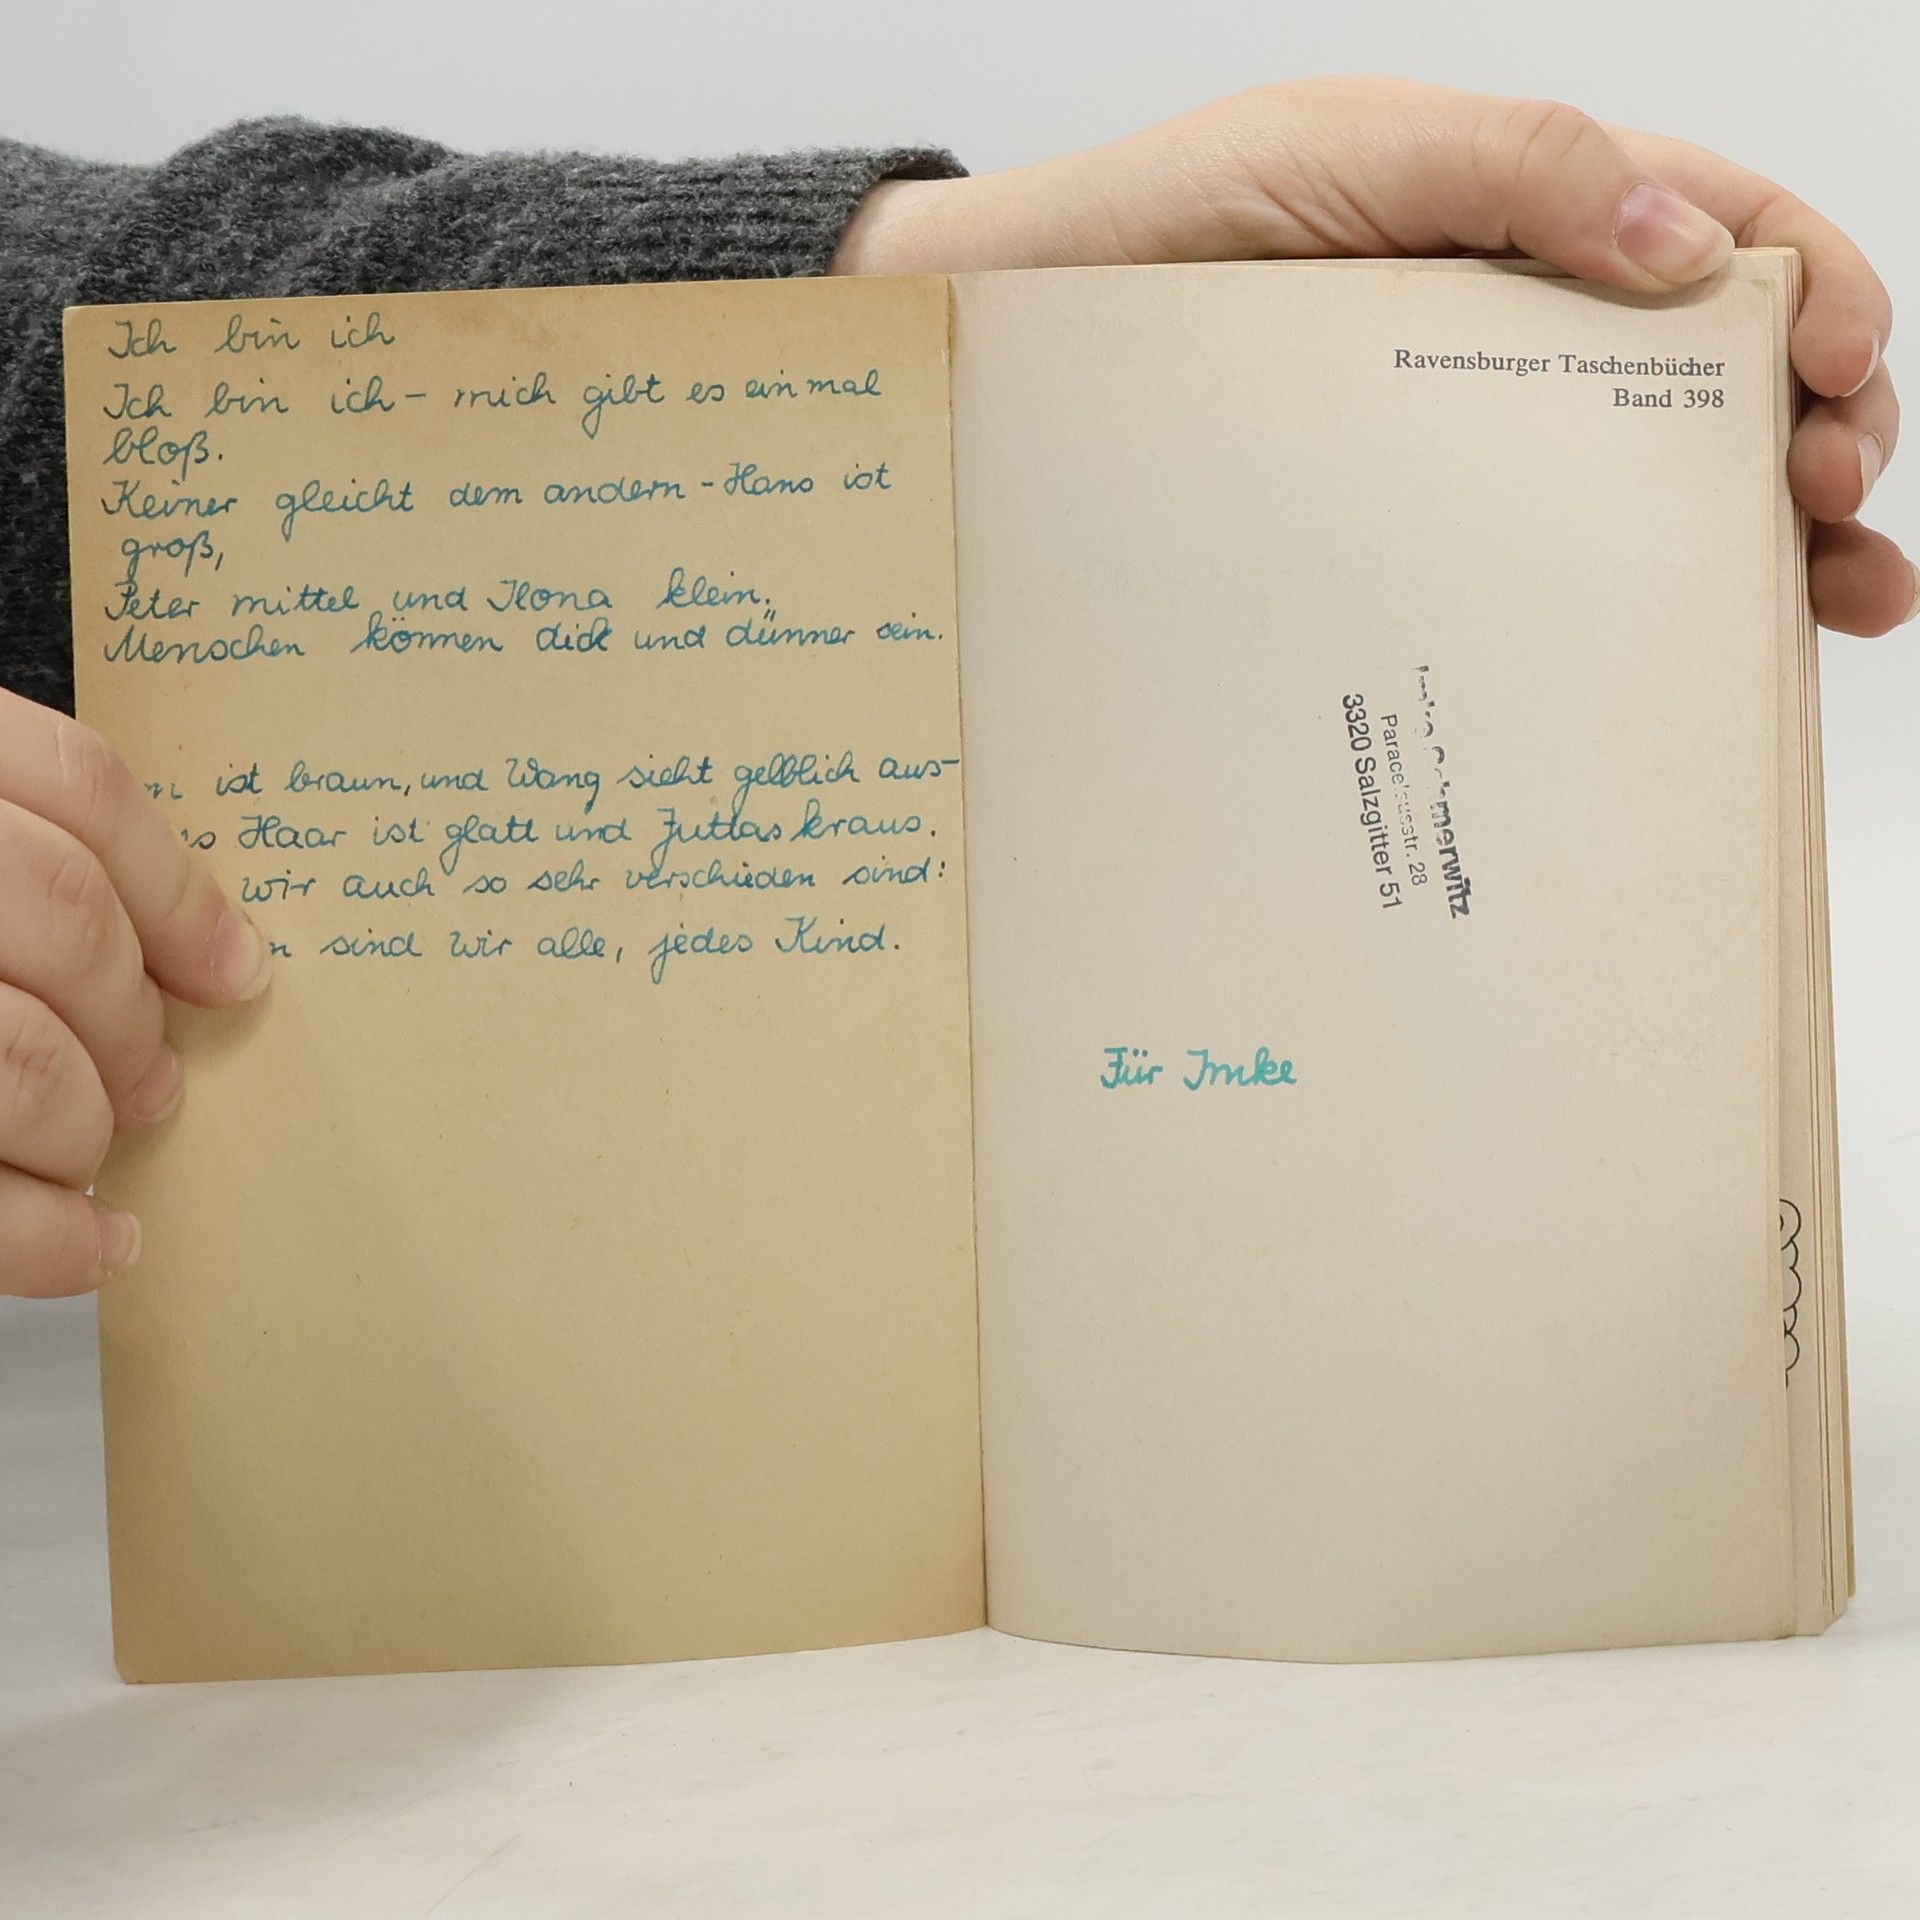 Ich bin ich
Ich bin ich – mich gibt es einmal
bloß.
Keiner gleicht dem andern - Hans ist
groß,
Peter mittel und Ilona klein.
Menschen können dick und dünner sein.
ist braun, und Wang sieht gelblich aus –
Haar ist glatt und Juttas kraus.
wir auch so sehr verschieden sind:
sind wir alle, jedes Kind.
Ravensburger Taschenbücher
Band 398
Paracelsusstr. 28
3320 Salzgitter 51
Für Imke